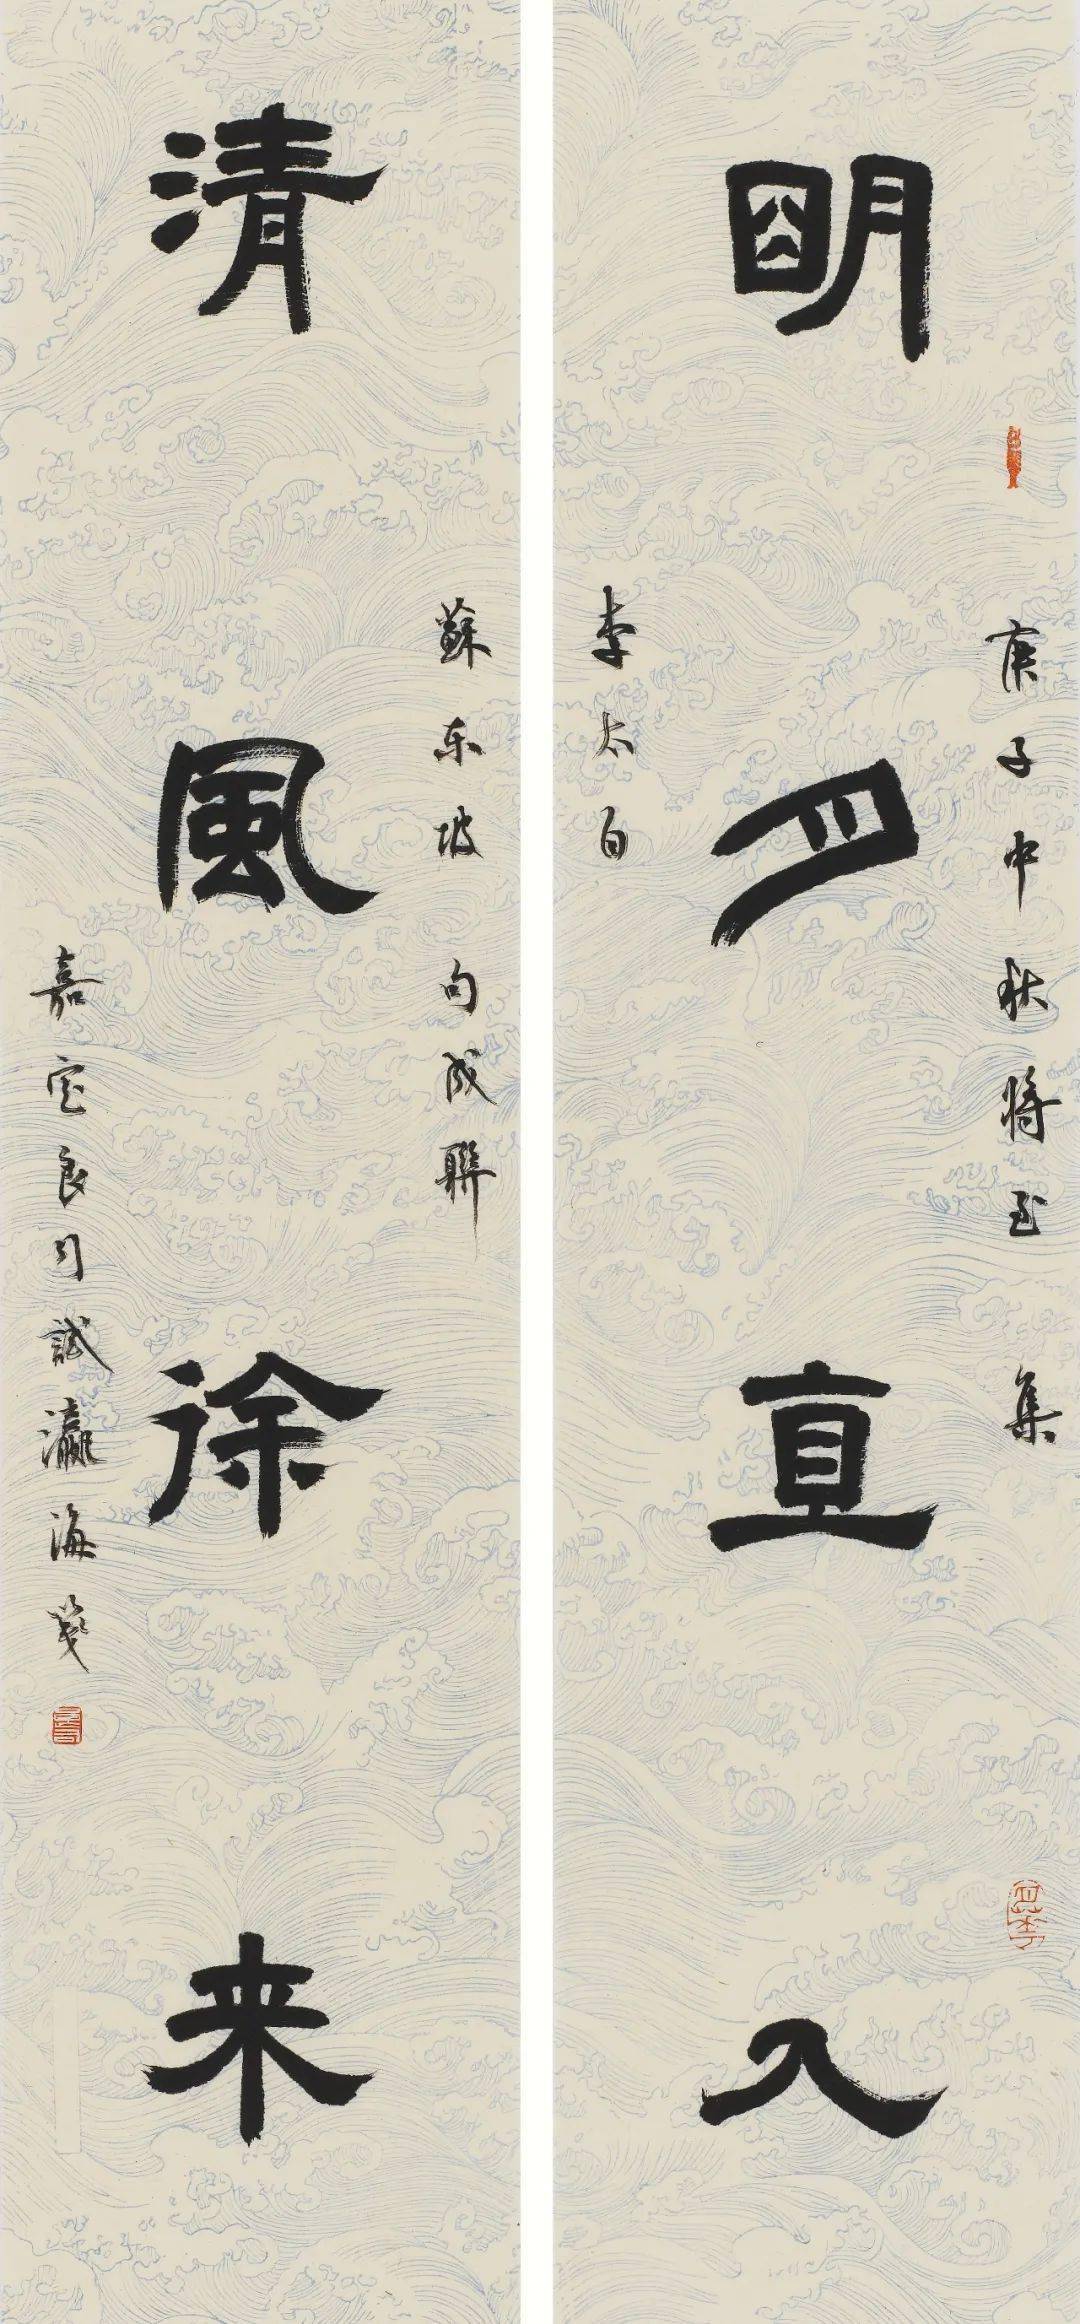 明月直入
庚子中秋将至 集
李太白
清風徐来
蘇东坡句成聯
嘉定良司試瀛海箋